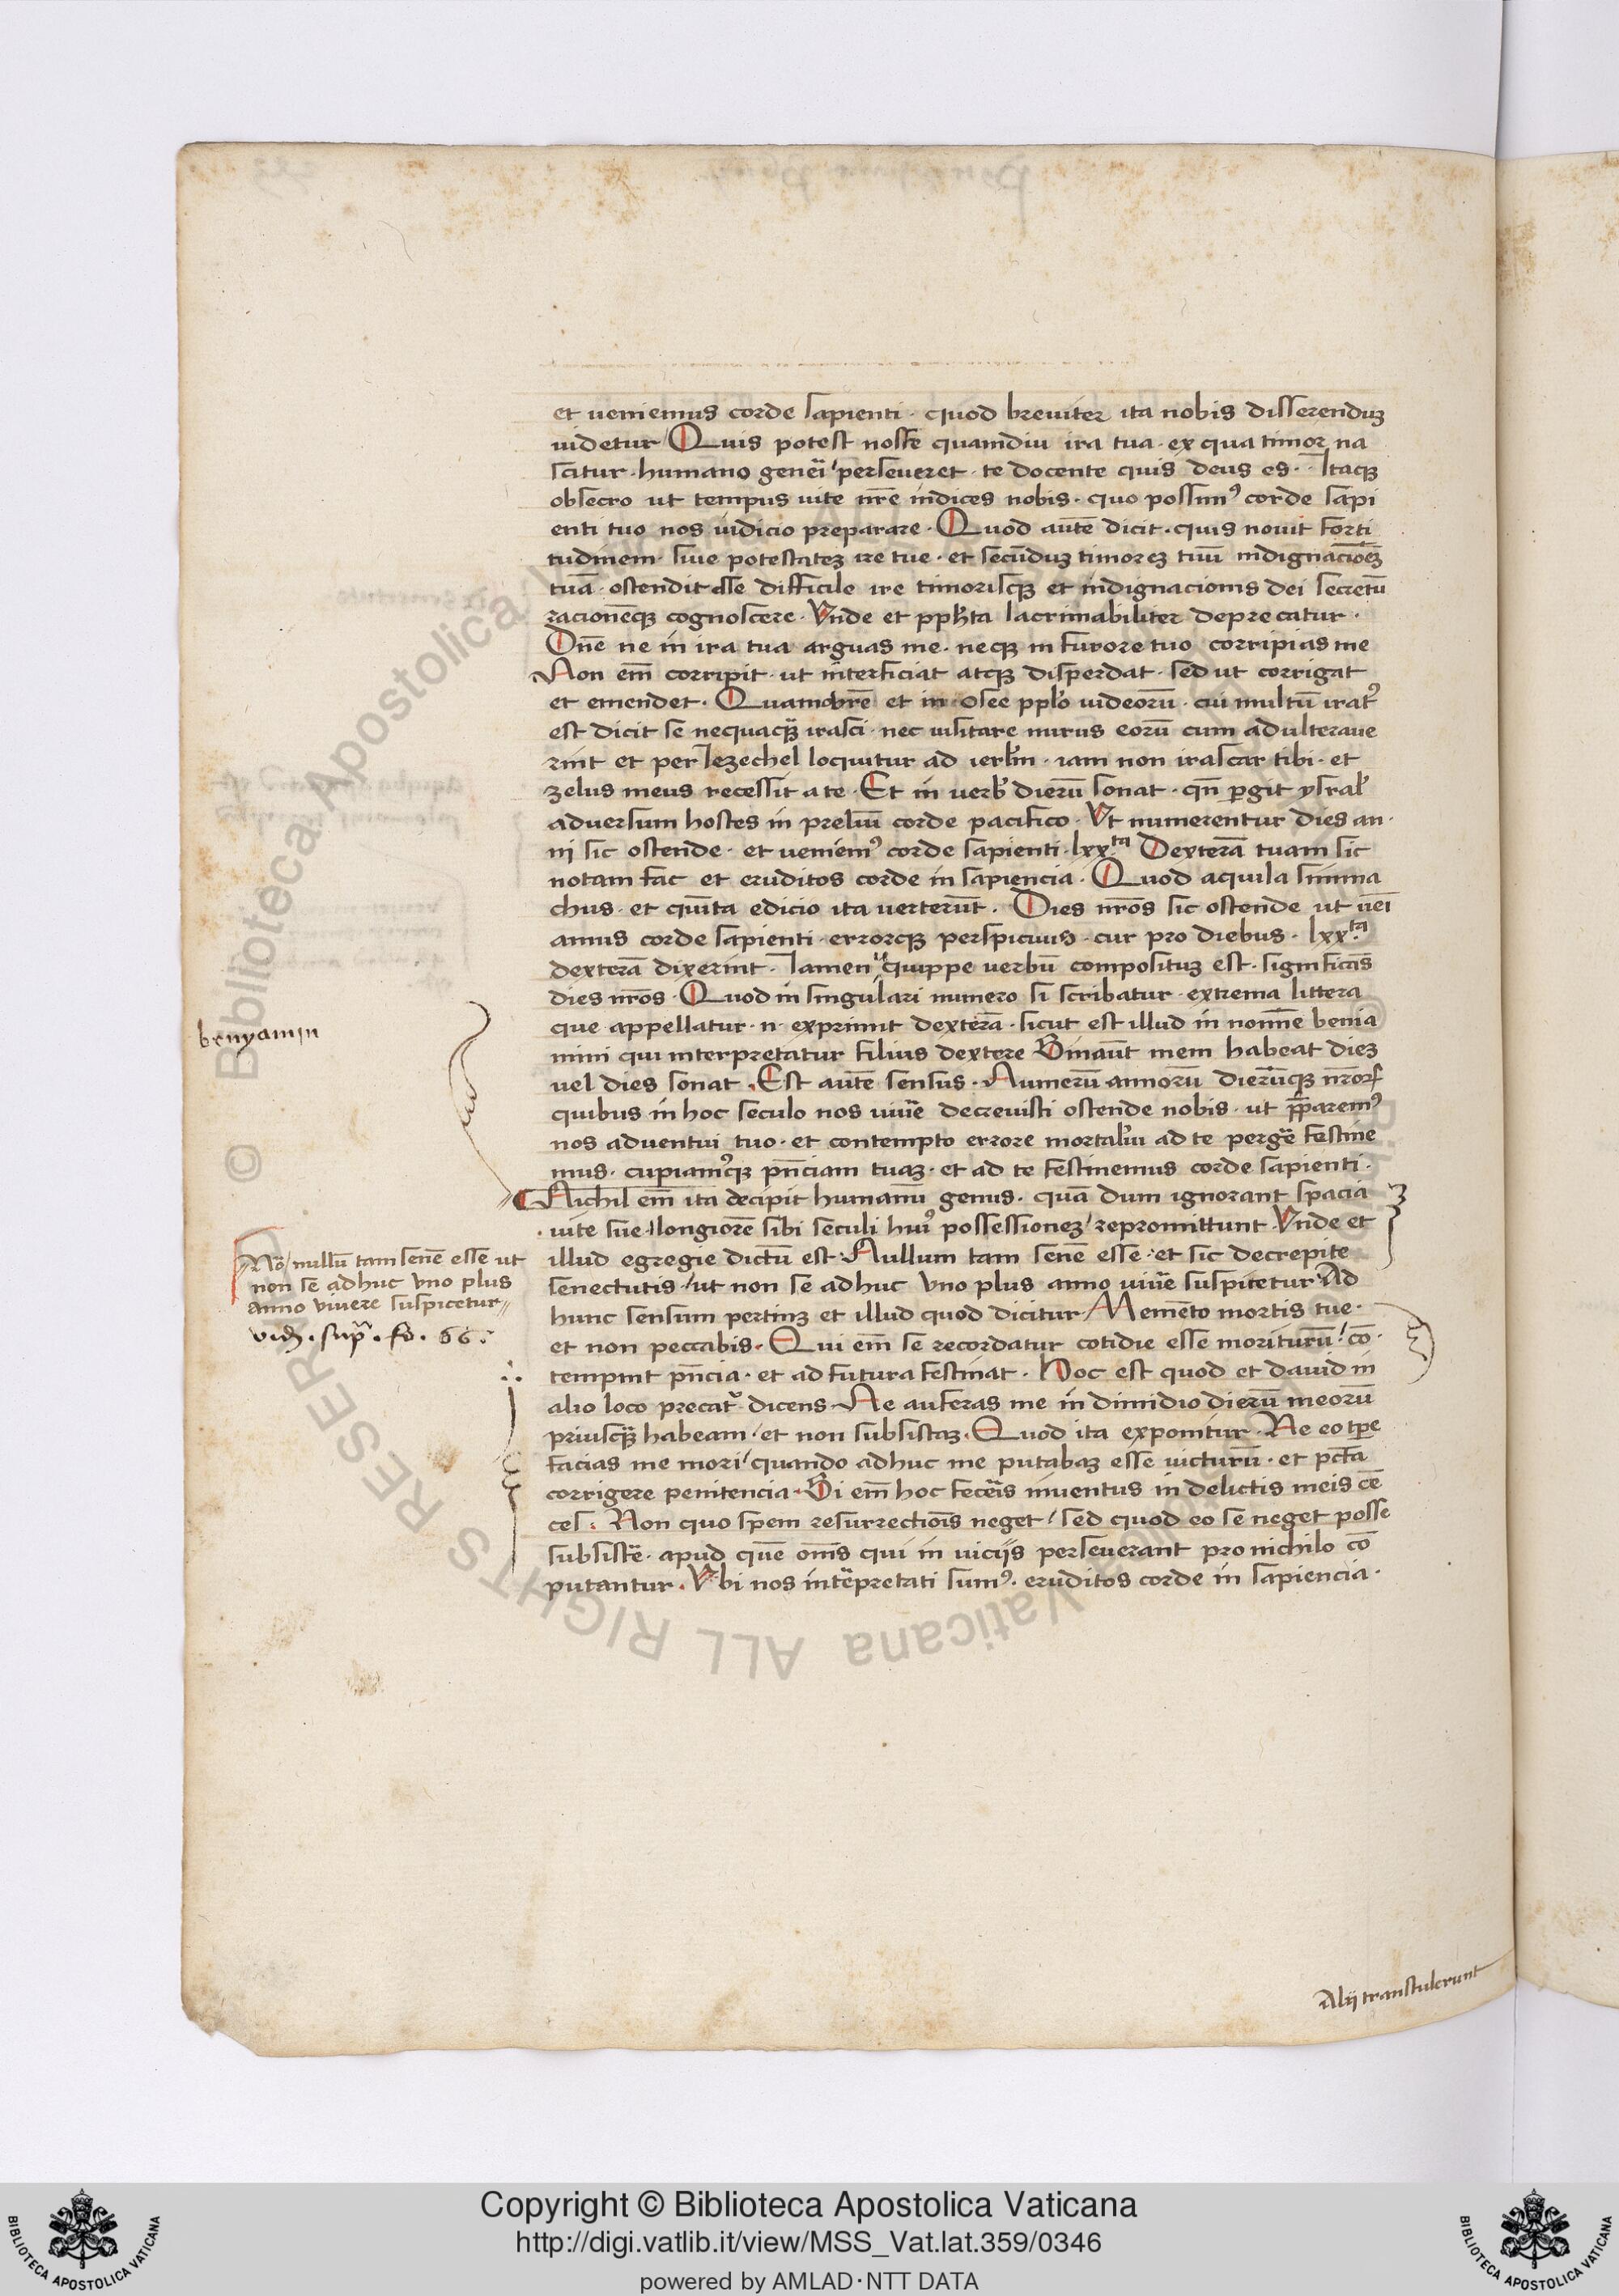 et ueniemus corde sapienti · quod breuiter ita nobis disserenduz
uidetur Quis potest nosse quamdiu ira tua · ex qua timor na
scitur · humano genẽi / perseueret · te docente quis deus es · Itaqz
obsecro ut tempus uite nr̃e indices nobis · quo possimꝰ corde sapi
enti tuo nos iudicio preparare · Quod autẽ dicit · quis nouit forti
tudinem · siue potestatez ire tue · et secũduz timorez tuũ indignaciõez
tuã · ostendit esse difficile ire timorisqz et indignacionis dei secretũ
racionẽqz cognoscere · Vnde et ꝓph̃ta lacrimabiliter deprecatur ·
Dñe ne in ira tua arguas me · neqz in furore tuo corripias me
Non em̃ corripit · ut interficiat atqz disperdat · sed ut corrigat
et emendet · Quamobrẽ et in osee pplo iudeorũ · cui multũ iratꝰ
est dicit se nequaqz̃ irasci · nec uisitare nurus eorũ cum adulteraue
rint et per Iezechel loquitur ad ierl̃m · iam non irascar tibi · et
zelus meus recessit a te · Et in uerb' dierũ sonat · qñ pgit ysral'
aduersum hostes in preliũ corde pacifico · Vt numerentur dies an ·
ni sic ostende · et ueniemꝰ corde sapienti · lxx.ta Dexterã tuam sic
notam fac et eruditos corde in sapiencia · Quod aquila simma
chus · et quĩta edicio ita uerterũt · Dies nr̃os sic ostende ut uei
amus corde sapienti · errorqz perspicuus · cur pro diebus · lxx.ta
dexterã dixerint · Iamenu quippe uerbũ composituz est · significãs
dies nr̃os · Quod in singulari numero si scribatur · extrema littera
que appellatur · n · exprimit dexterã · sicut est illud in noĩne benia
mini qui interpretatur filius dextere Sinaũt mem habeat diez
uel dies sonat · Est autẽ sensus · Numerũ annorũ dierũqz nr̃orꝝ
quibus in hoc seculo nos uiuẽ decreuisti ostende nobis · ut p̃paremꝰ
nos aduentui tuo · et contempto errore mortaliũ ad te pergẽ festine
mus · cupiamꝰqz pñciam tuaz · et ad te festinemus corde sapienti ·
Nichil em̃ ita decipit humanũ genus · quã dum ignorant spacia
uite sue / longiorẽ sibi seculi huiꝰ possessionez / repromittunt · Vnde et
illud egregie dictũ est · Nullum tam senẽ esse · et sic decrepite
senectutis / ut non se adhuc vno plus anno uiuẽ suspicetur Ad
hunc sensum pertinz et illud quod dicitur / Memẽto mortis tue ·
et non peccabis · Qui em̃ se recordatur cotidie esse moriturũ / cõ ·
tempnit pñcia · et ad futura festinat · Hoc est quod et dauid in
alio loco precatꝰ dicens · Ne auferas me in dimidio dierũ meorũ
priusqz̃ habeam / et non subsistaz · Quod ita exponitur · Ne eo tp̃e
facias me mori / quando adhuc me putabaz esse uicturũ · et pctã
corrigere penitencia · Si em̃ hoc fecẽis inuentus in delictis meis cẽ
ces · Non quo spem resurrectiõis neget / sed quod eo se neget posse
subsistẽ · apud quẽ om̃s qui in uicijs perseuerant pro nichilo cõ
putantur · Vbi nos intẽpretati sumꝰ · eruditos corde in sapiencia ·
benyamin
Nõ / nullũ tam senẽ esse ut
non se adhuc vno plus
anno vivere suspicetur //
vid · sup̃ · fo · 66 ·
Alij transtulerunt
Copyright © Biblioteca Apostolica Vaticana
http://digi.vatlib.it/view/MSS_Vat.lat.359/0346
powered by AMLAD·NTT DATA
BIBLIOTECA APOSTOLICA VATICANA
BIBLIOTECA APOSTOLICA VATICANA